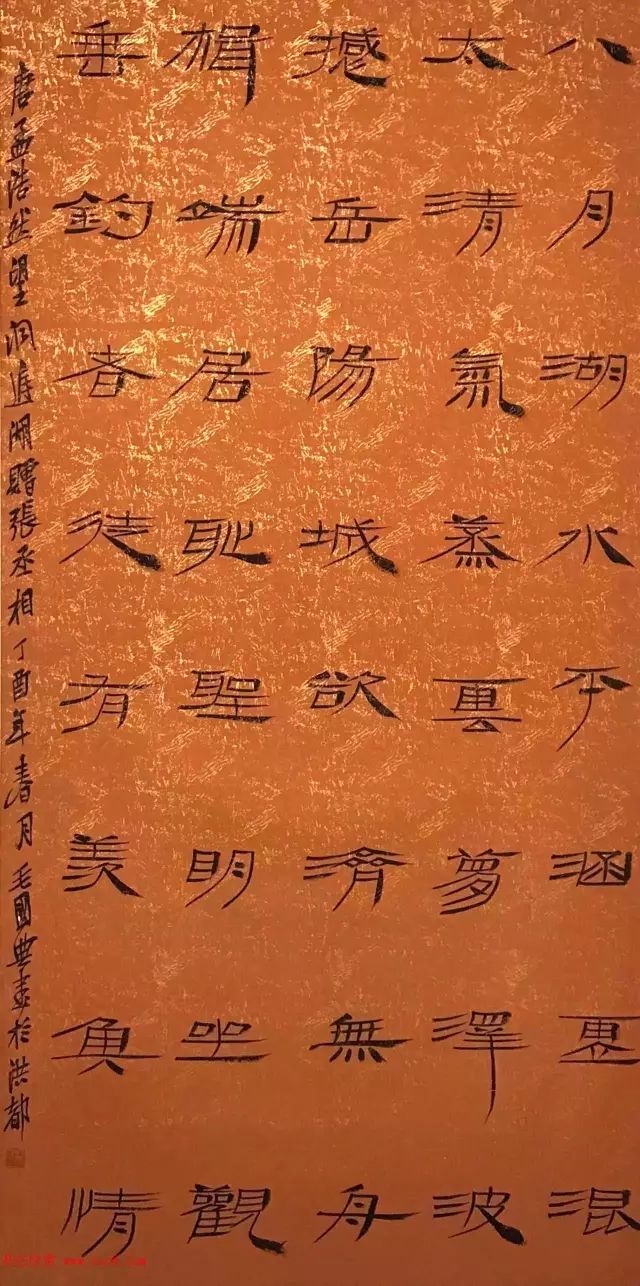 八月湖水平涵虛混
太清氣蒸雲夢澤波
撼岳陽城欲濟無舟
楫端居恥聖明坐觀
垂釣者徒有羨魚情
唐孟浩然望洞庭湖贈張丞相丁酉年春月毛國典書於洪都